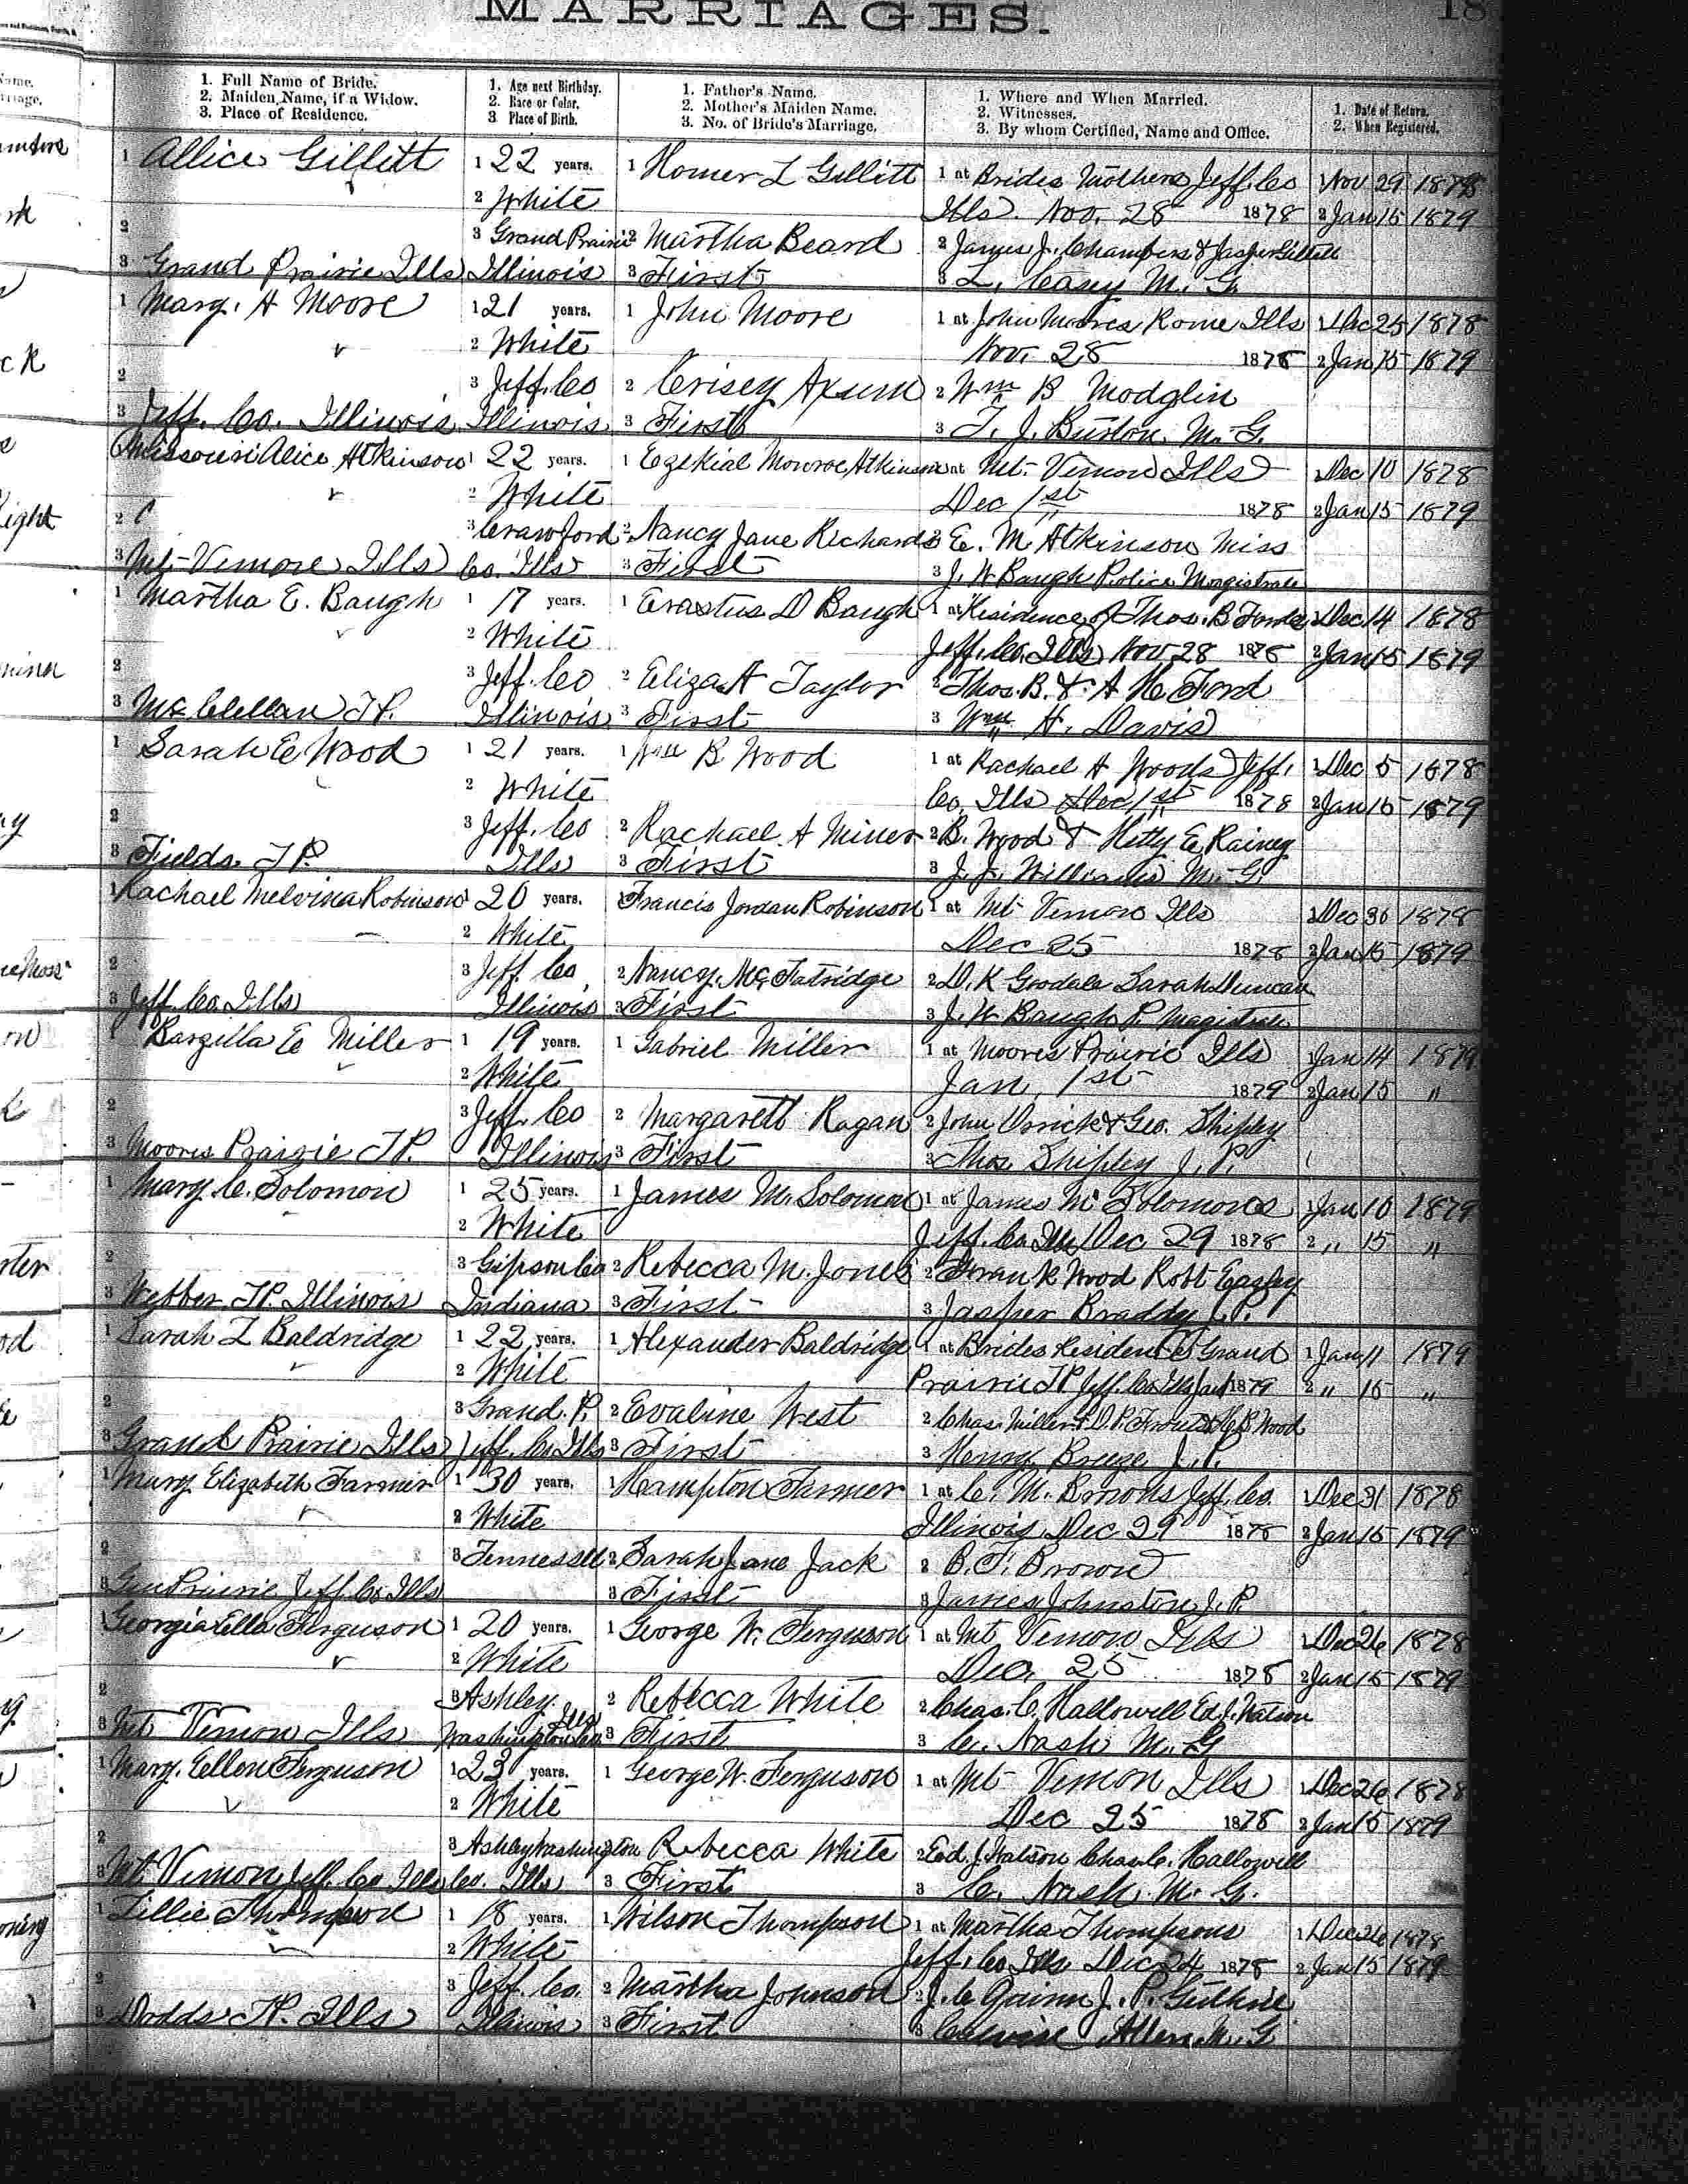 MARRIAGES. 18
1. Full Name of Bride.
2. Maiden Name, if a Widow.
3. Place of Residence.
1. Age next Birthday.
2. Race or Color.
3 Place of Birth.
1. Father's Name.
2. Mother's Maiden Name.
3. No. of Bride's Marriage.
1. Where and When Married.
2. Witnesses.
3. By whom Certified, Name and Office.
1. Date of Return.
2. When Registered.
1 Allice Gillett 1 22 years. 1 Homer L Gillett 1 at Brides Mothers Jeff. Co Nov 29 1878
2 White Ills. Nov. 28 1878 2 Jan 15 1879
2 3 Grand Prairie 2 Martha Beard 2 James J. Chambers & Jasper Gillett
3 Grand Prairie Ills Illinois 3 First 3 L. Casey M. G.
1 Mary. A Moore 1 21 years. 1 John Moore 1 at John Moores Rome Ills 1 Dec 25 1878
2 White Nov. 28 1878 2 Jan 15 1879
2 3 Jeff. Co 2 Crisey Axum 2 Wm B Modglin
3 Jeff. Co. Illinois Illinois 3 First 3 T. J. Burton M. G.
Missouri Alice Atkinson 1 22 years. 1 Ezekial Monroe Atkinson at Mt. Vernon Ills 1 Dec 10 1878
2 White Dec 1st 1878 2 Jan 15 1879
2 3 Crawford 2 Nancy Jane Richards 2 E. M Atkinson Miss
3 Mt-Vernon Ills Co. Ills 3 First 3 J. W Baugh Police Magistrate
1 Martha E. Baugh 1 17 years. 1 Erastus D Baugh 1 at Residence of Thos. B Fords 1 Dec 14 1878
2 White Jeff. Co. Ills Nov 28 1878 2 Jan 15 1879
2 3 Jeff. Co 2 Eliza A Taylor 2 Thos. B. & A H Ford
3 Mc Clellan T P. Illinois 3 First 3 Wm H. Davis
1 Sarah E Wood 1 21 years. 1 Wm B Wood 1 at Rachael A Woods Jeff. 1 Dec 5 1878
2 White Co. Ills Dec 1st 1878 2 Jan 15 1879
2 3 Jeff. Co 2 Rachael A Miner 2 B. Wood & Hetty E Rainey
3 Fields T P. Ills 3 First 3 J. J. Williams M. G.
1 Rachael Melvina Robinson 1 20 years. Francis Jordan Robinson 1 at Mt Vernon Ills 1 Dec 30 1878
2 White Dec 25 1878 2 Jan 15 1879
2 3 Jeff Co 2 Nancy. McFatridge 2 D. K Goodale Sarah Duncan
3 Jeff. Co. Ills Illinois 3 First 3 J. W Baugh P. Magistrate
1 Barzilla E Miller 1 19 years. 1 Gabriel Miller 1 at Moores Prairie Ills Jan 14 1879
2 White Jan. 1st 1879 2 Jan 15 "
2 3 Jeff. Co 2 Margarett Ragan 2 John Orrick & Geo. Shipley
3 Moores Prairie T P. Illinois 3 First 3 Thos Shipley J. P.
1 Mary C. Solomon 1 25 years. 1 James M. Solomon 1 at James M Solomons 1 Jan 10 1879
2 White Jeff. Co. Ills Dec 29 1878 2 " 15 "
2 3 Gipson Co 2 Rebecca M. Jones 2 Frank Wood Robt Easley
3 Webber T P. Illinois Indiana 3 First 3 Jasper Braddy J. P.
1 Sarah L Baldridge 1 22 years. 1 Alexander Baldridge 1 at Brides Residence Grand 1 Jan 11 1879
2 White Prairie T P Jeff. Co Ills Jan 1 1879 2 " 15 "
2 3 Grand. P. 2 Evaline West 2 Chas. Miller D. P. C B Wood
3 Grand Prairie Ills Jeff. Co Ills 3 First 3 Henry Breeze J. P.
1 Mary Elizabeth Farmer 1 30 years. 1 Hampton Farmer 1 at C. M. Browns Jeff. Co. 1 Dec 31 1878
2 White Illinois Dec 29 1878 2 Jan 15 1879
2 3 Tennessee 2 Sarah Jane Jack 2 B. F. Brown
3 Prairie Jeff. Co Ills 3 First 3 James Johnston J. P.
1 Georgia Ella Ferguson 1 20 years. 1 George W. Ferguson 1 at Mt Vernon Ills 1 Dec 26 1878
2 White Dec. 25 1878 2 Jan 15 1879
2 3 Ashley 2 Rebecca White 2 Chas. C. Hallowell Ed J. Watson
3 Mt Vernon Ills Washington Co. Ills 3 First 3 C. Nash M. G
1 Mary. Ellen Ferguson 1 23 years. 1 George W. Ferguson 1 at Mt Vernon Ills 1 Dec 26 1878
2 White Dec 25 1878 2 Jan 15 1879
2 3 Ashley Washington Rebecca White 2 Ed. J. Watson Chas C. Hallowell
3 Mt. Vernon Jeff. Co Ills Co. Ills 3 First 3 C. Nash. M. G.
1 Lillie Thompson 1 18 years. 1 Wilson Thompson 1 at Martha Thompsons 1 Dec 26 1878
2 White Jeff. Co Ills Dec 24 1878 2 Jan 15 1879
2 3 Jeff. Co. 2 Martha Johnson 2 J. C Quinn J. P. Guthrie
3 Dodds T P. Ills Illinois 3 First 3 Calvin Allen M. G